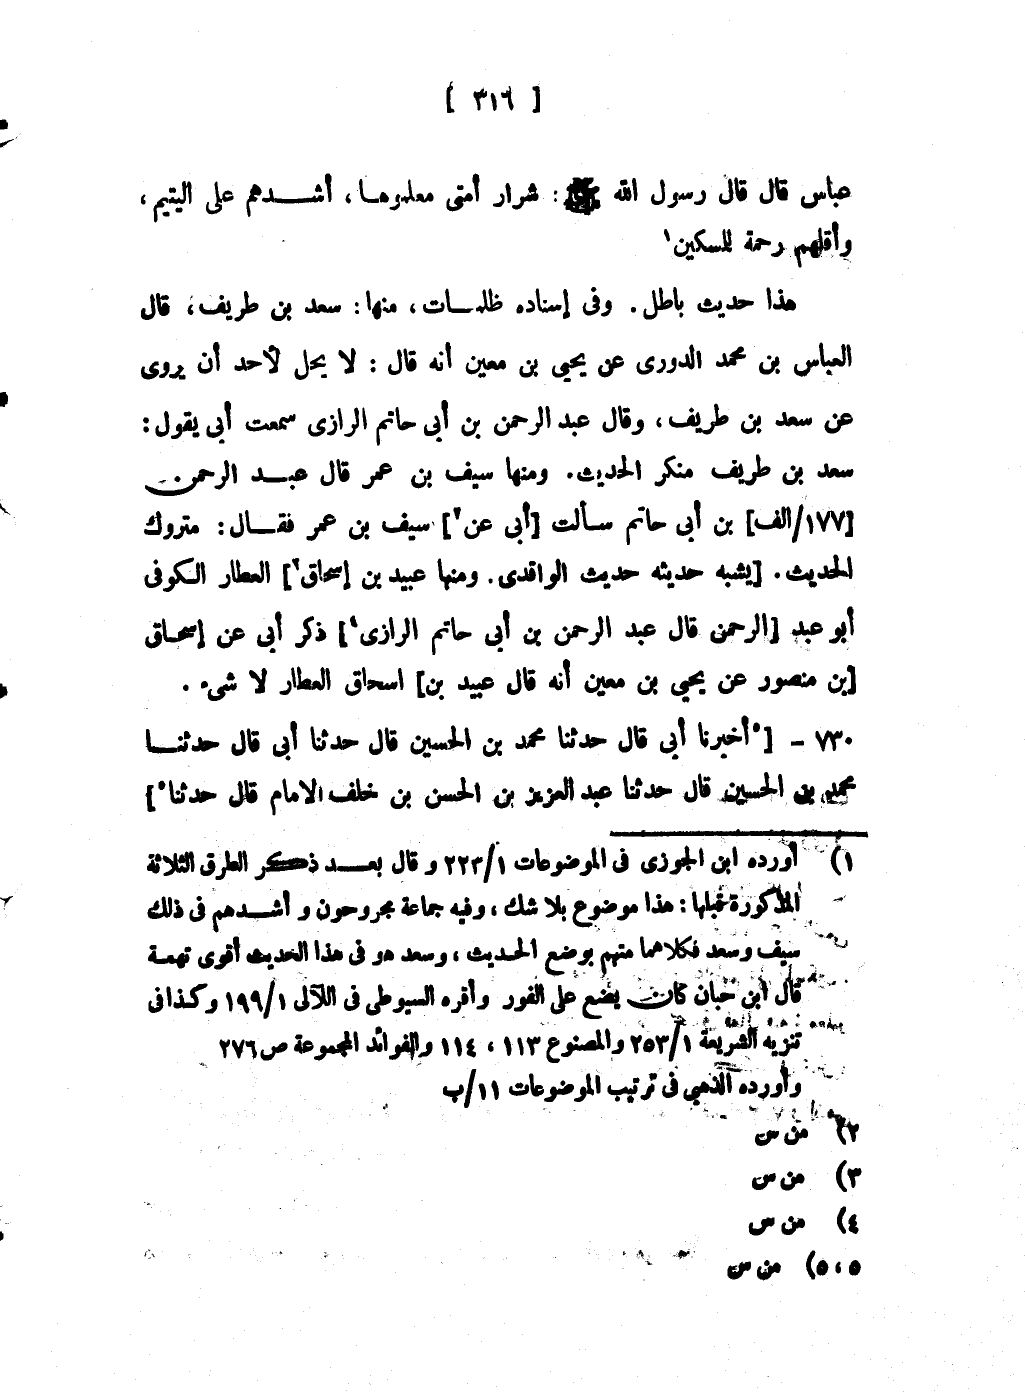 [ ٣١٦ ]
عباس قال قال رسول الله ﷺ : شرار أمتى معلموهـا ، أشـدهم على اليتيم ،
وأقلهم رحمة للمسكين١
هذا حديث باطل . وفى إسناده ظلمـات ، منها : سعد بن طريف ، قال
العباس بن محمد الدورى عن يحيى بن معين أنه قال : لا يحل لأحد أن يروى
عن سعد بن طريف ، وقال عبد الرحمن بن أبى حاتم الرازى سمعت أبى يقول :
سعد بن طريف منكر الحديث . ومنها سيف بن عمر قال عبـد الرحمن
[١٧٧/الف] بن أبى حاتم سـألت [أبى عن٢] سيف بن عمر فقـال : متروك
الحديث . [يشبه حديثه حديث الواقدى . ومنها عبيد بن إسحاق٣] العطار الكوفى
أبو عبد [الرحمن قال عبد الرحمن بن أبى حاتم الرازى٤] ذكر أبى عن إسحـاق
[بن منصور عن يحيى بن معين أنه قال عبيد بن] اسحاق العطار لا شىء .
٧٣٠ – [٥أخبرنا أبى قال حدثنا محمد بن الحسين قال حدثنا أبى قال حدثنـا
محمد بن الحسين قال حدثنا عبد العزيز بن الحسن بن خلف الامام قال حدثنا٥]
١) أورده ابن الجوزى فى الموضوعات ٢٢٣/١ و قال بعـد ذكر الطرق الثلاثة
المذكورة قبلها : هذا موضوع بلا شك ، وفيه جماعة مجروحون و أشـدهم فى ذلك
سيف وسعد فكلاهما متهم بوضع الحديث ، وسعد هو فى هذا الحديث أقوى تهمـة
قال ابن حبان كان يضع على الفور وأقره السيوطى فى اللآلى ١٩٩/١ وكذا فى
تنزيه الشريعة ٢٥٣/١ والمصنوع ١١٣ ، ١١٤ والفوائد المجموعة ص ٢٧٦
وأورده الذهبى فى ترتيب الموضوعات ١١/ب
٢) من س
٣) من س
٤) من س
٥ ، ٥) من س